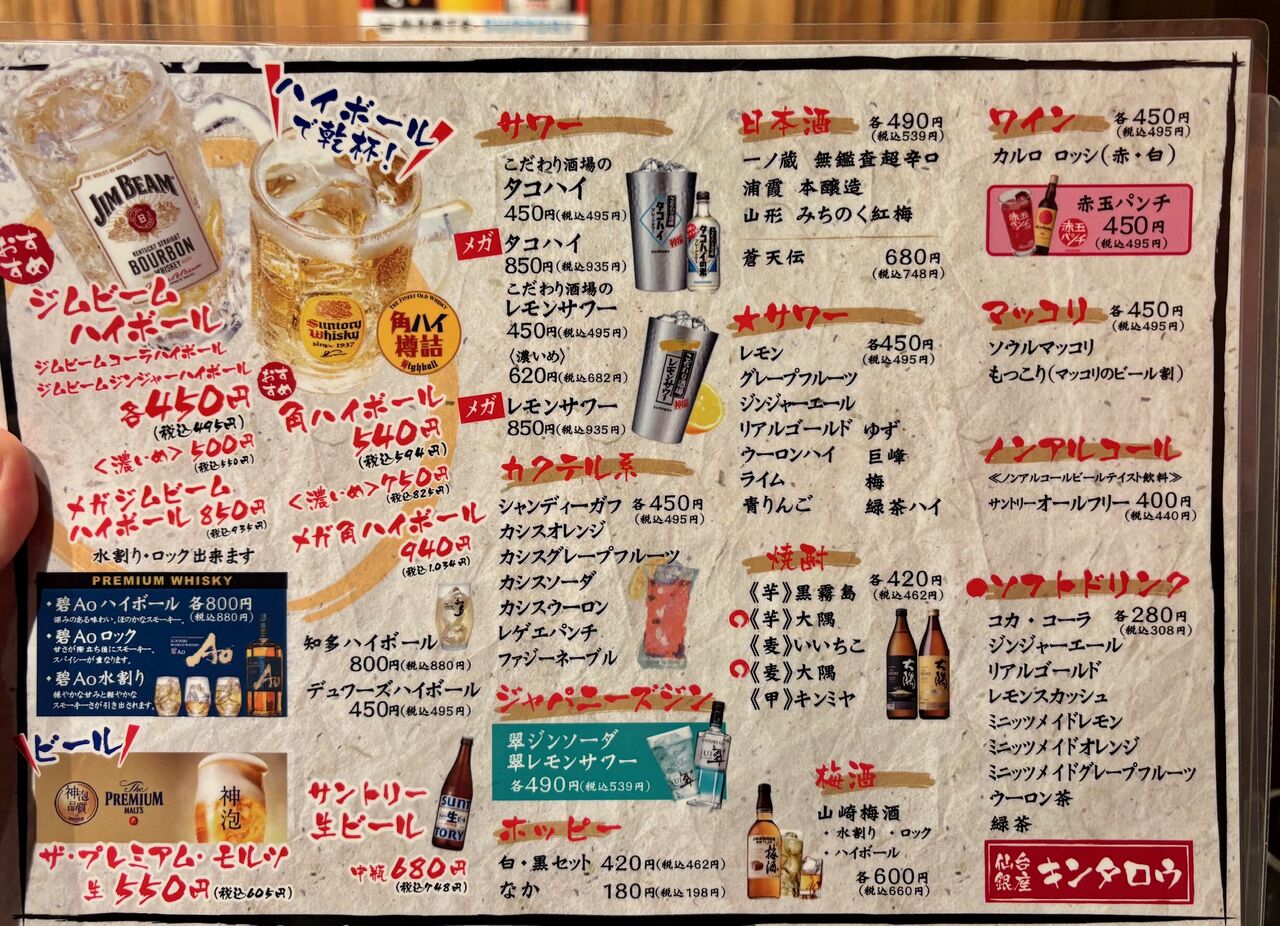 JIM BEAM
KENTUCKY STRAIGHT
BOURBON
WHISKEY
ハイボール
で乾杯!
Suntory
Whisky
since 1937
THE FINEST OLD WHISKY
角ハイ
樽詰
Highball
おすすめ
ジムビーム
ハイボール
ジムビームコーラハイボール
ジムビームジンジャーハイボール
各450円
(税込495円)
<濃いめ>500円
(税込550円)
メガジムビーム
ハイボール 850円
(税込935円)
水割り・ロック出来ます
おすすめ
角ハイボール
540円
(税込594円)
<濃いめ>750円
(税込825円)
メガ角ハイボール
940円
(税込1,034円)
PREMIUM WHISKY
・碧Aoハイボール 各800円
(税込880円)
深みのある味わい。ほのかなスモーキー。
・碧Aoロック
甘さが際立ち後にスモーキー、
スパイシーが重なります。
・碧Ao水割り
穏やかな甘みと軽やかな
スモーキーさが引き出されます。
Ao
知多ハイボール
800円(税込880円)
デュワーズハイボール
450円(税込495円)
ビール
神泡
品質
The
PREMIUM
MALT'S
神泡
ザ・プレミアム・モルツ
生 550円(税込605円)
サントリー
生ビール
中瓶 680円
(税込748円)
サワー
こだわり酒場の
タコハイ
450円(税込495円)
メガ タコハイ
850円(税込935円)
こだわり酒場の
レモンサワー
450円(税込495円)
〈濃いめ〉
620円(税込682円)
メガ レモンサワー
850円(税込935円)
カクテル系
シャンディーガフ 各450円
(税込495円)
カシスオレンジ
カシスグレープフルーツ
カシスソーダ
カシスウーロン
レゲエパンチ
ファジーネーブル
ジャパニーズジン
翠ジンソーダ
翠レモンサワー
各490円(税込539円)
ホッピー
白・黒セット 420円(税込462円)
なか 180円(税込198円)
日本酒 各490円
(税込539円)
一ノ蔵 無鑑査超辛口
浦霞 本醸造
山形 みちのく紅梅
蒼天伝 680円
(税込748円)
★サワー
各450円
(税込495円)
レモン
グレープフルーツ
ジンジャーエール
リアルゴールド ゆず
ウーロンハイ 巨峰
ライム 梅
青りんご 緑茶ハイ
焼酎
各420円
(税込462円)
《芋》黒霧島
《芋》大隅
《麦》いいちこ
《麦》大隅
《甲》キンミヤ
梅酒
山崎梅酒
・水割り ・ロック
・ハイボール
各600円
(税込660円)
ワイン 各450円
(税込495円)
カルロ ロッシ(赤・白)
赤玉パンチ
450円
(税込495円)
マッコリ 各450円
(税込495円)
ソウルマッコリ
もっこり(マッコリのビール割)
ノンアルコール
≪ノンアルコールビールテイスト飲料≫
サントリーオールフリー 400円
(税込440円)
●ソフトドリンク
コカ・コーラ 各280円
(税込308円)
ジンジャーエール
リアルゴールド
レモンスカッシュ
ミニッツメイドレモン
ミニッツメイドオレンジ
ミニッツメイドグレープフルーツ
ウーロン茶
緑茶
仙台
銀座 キンタロウ